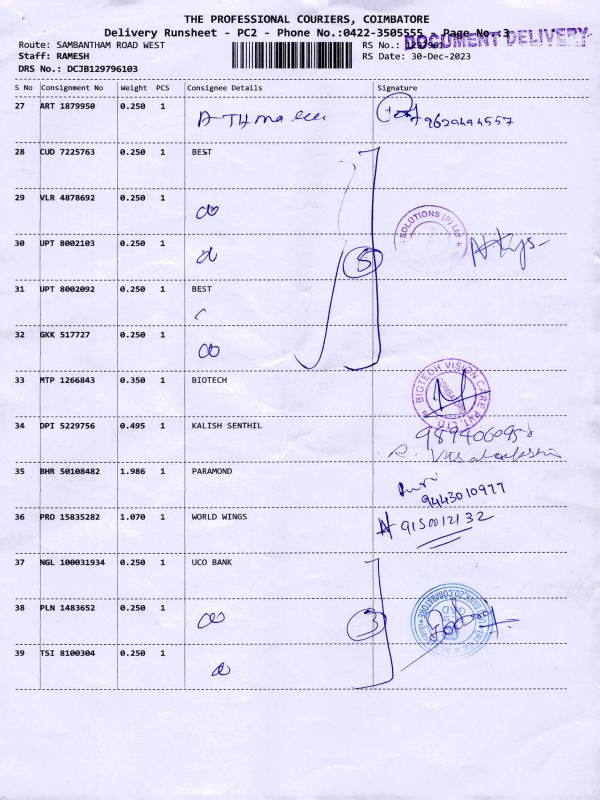 THE PROFESSIONAL COURIERS, COIMBATORE
Delivery Runsheet - PC2 - Phone No.:0422-3505555 - Page No.:3
DOCUMENT DELIVERY
Route: SAMBANTHAM ROAD WEST
RS No.:
Staff: RAMESH
RS Date: 30-Dec-2023
DRS No.: DCJB129796103
S No Consignment No Weight PCS Consignee Details Signature
27 ART 1879950 0.250 1 9629494557
28 CUD 7225763 0.250 1 BEST
29 VLR 4878692 0.250 1
SOLUTIONS (P) Ltd
30 UPT 8002103 0.250 1 5
31 UPT 8002092 0.250 1 BEST
32 GKK 517727 0.250 1
33 MTP 1266843 0.350 1 BIOTECH
BIOTECH VISION CARE PVT. LTD
34 DPI 5229756 0.495 1 KALISH SENTHIL
35 BHR 50108482 1.986 1 PARAMOND
9443010977
36 PRO 15835282 1.070 1 WORLD WINGS
37 NGL 100031934 0.250 1 UCO BANK
38 PLN 1483652 0.250 1 3
39 TSI 8100304 0.250 1